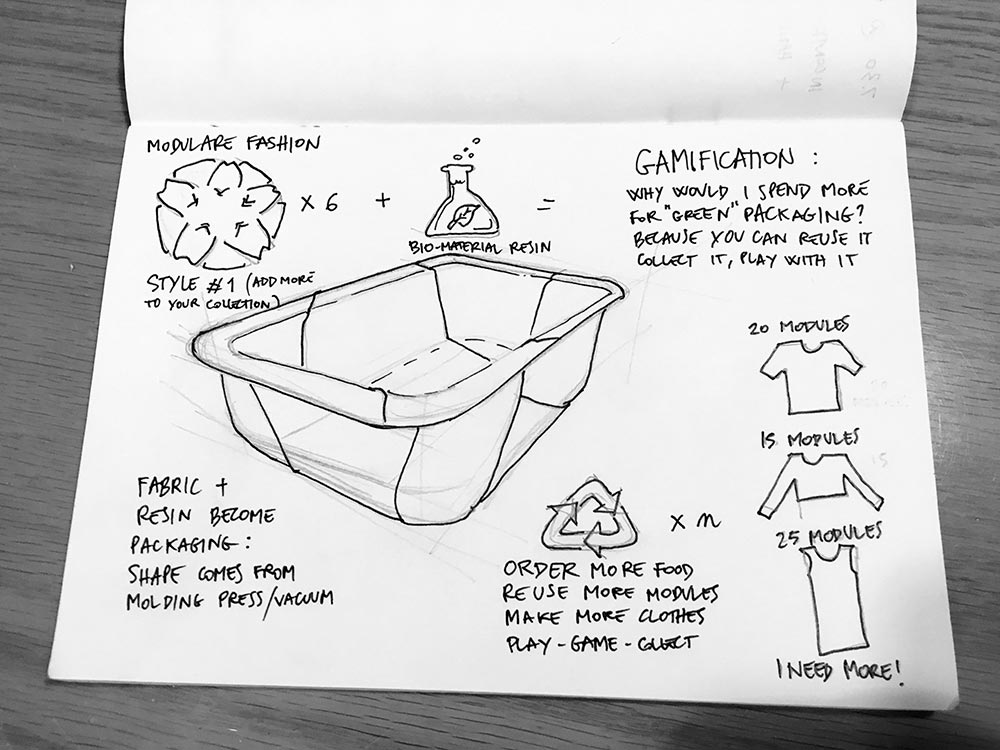 MODULARE FASHION
× 6 + =
BIO-MATERIAL RESIN
STYLE #1 (ADD MORE
TO YOUR COLLECTION)
GAMIFICATION :
WHY WOULD I SPEND MORE
FOR "GREEN" PACKAGING?
BECAUSE YOU CAN REUSE IT
COLLECT IT, PLAY WITH IT
20 MODULES
15 MODULES
25 MODULES
I NEED MORE!
FABRIC +
RESIN BECOME
PACKAGING:
SHAPE COMES FROM
MOLDING PRESS/VACUUM
× n
ORDER MORE FOOD
REUSE MORE MODULES
MAKE MORE CLOTHES
PLAY - GAME - COLLECT